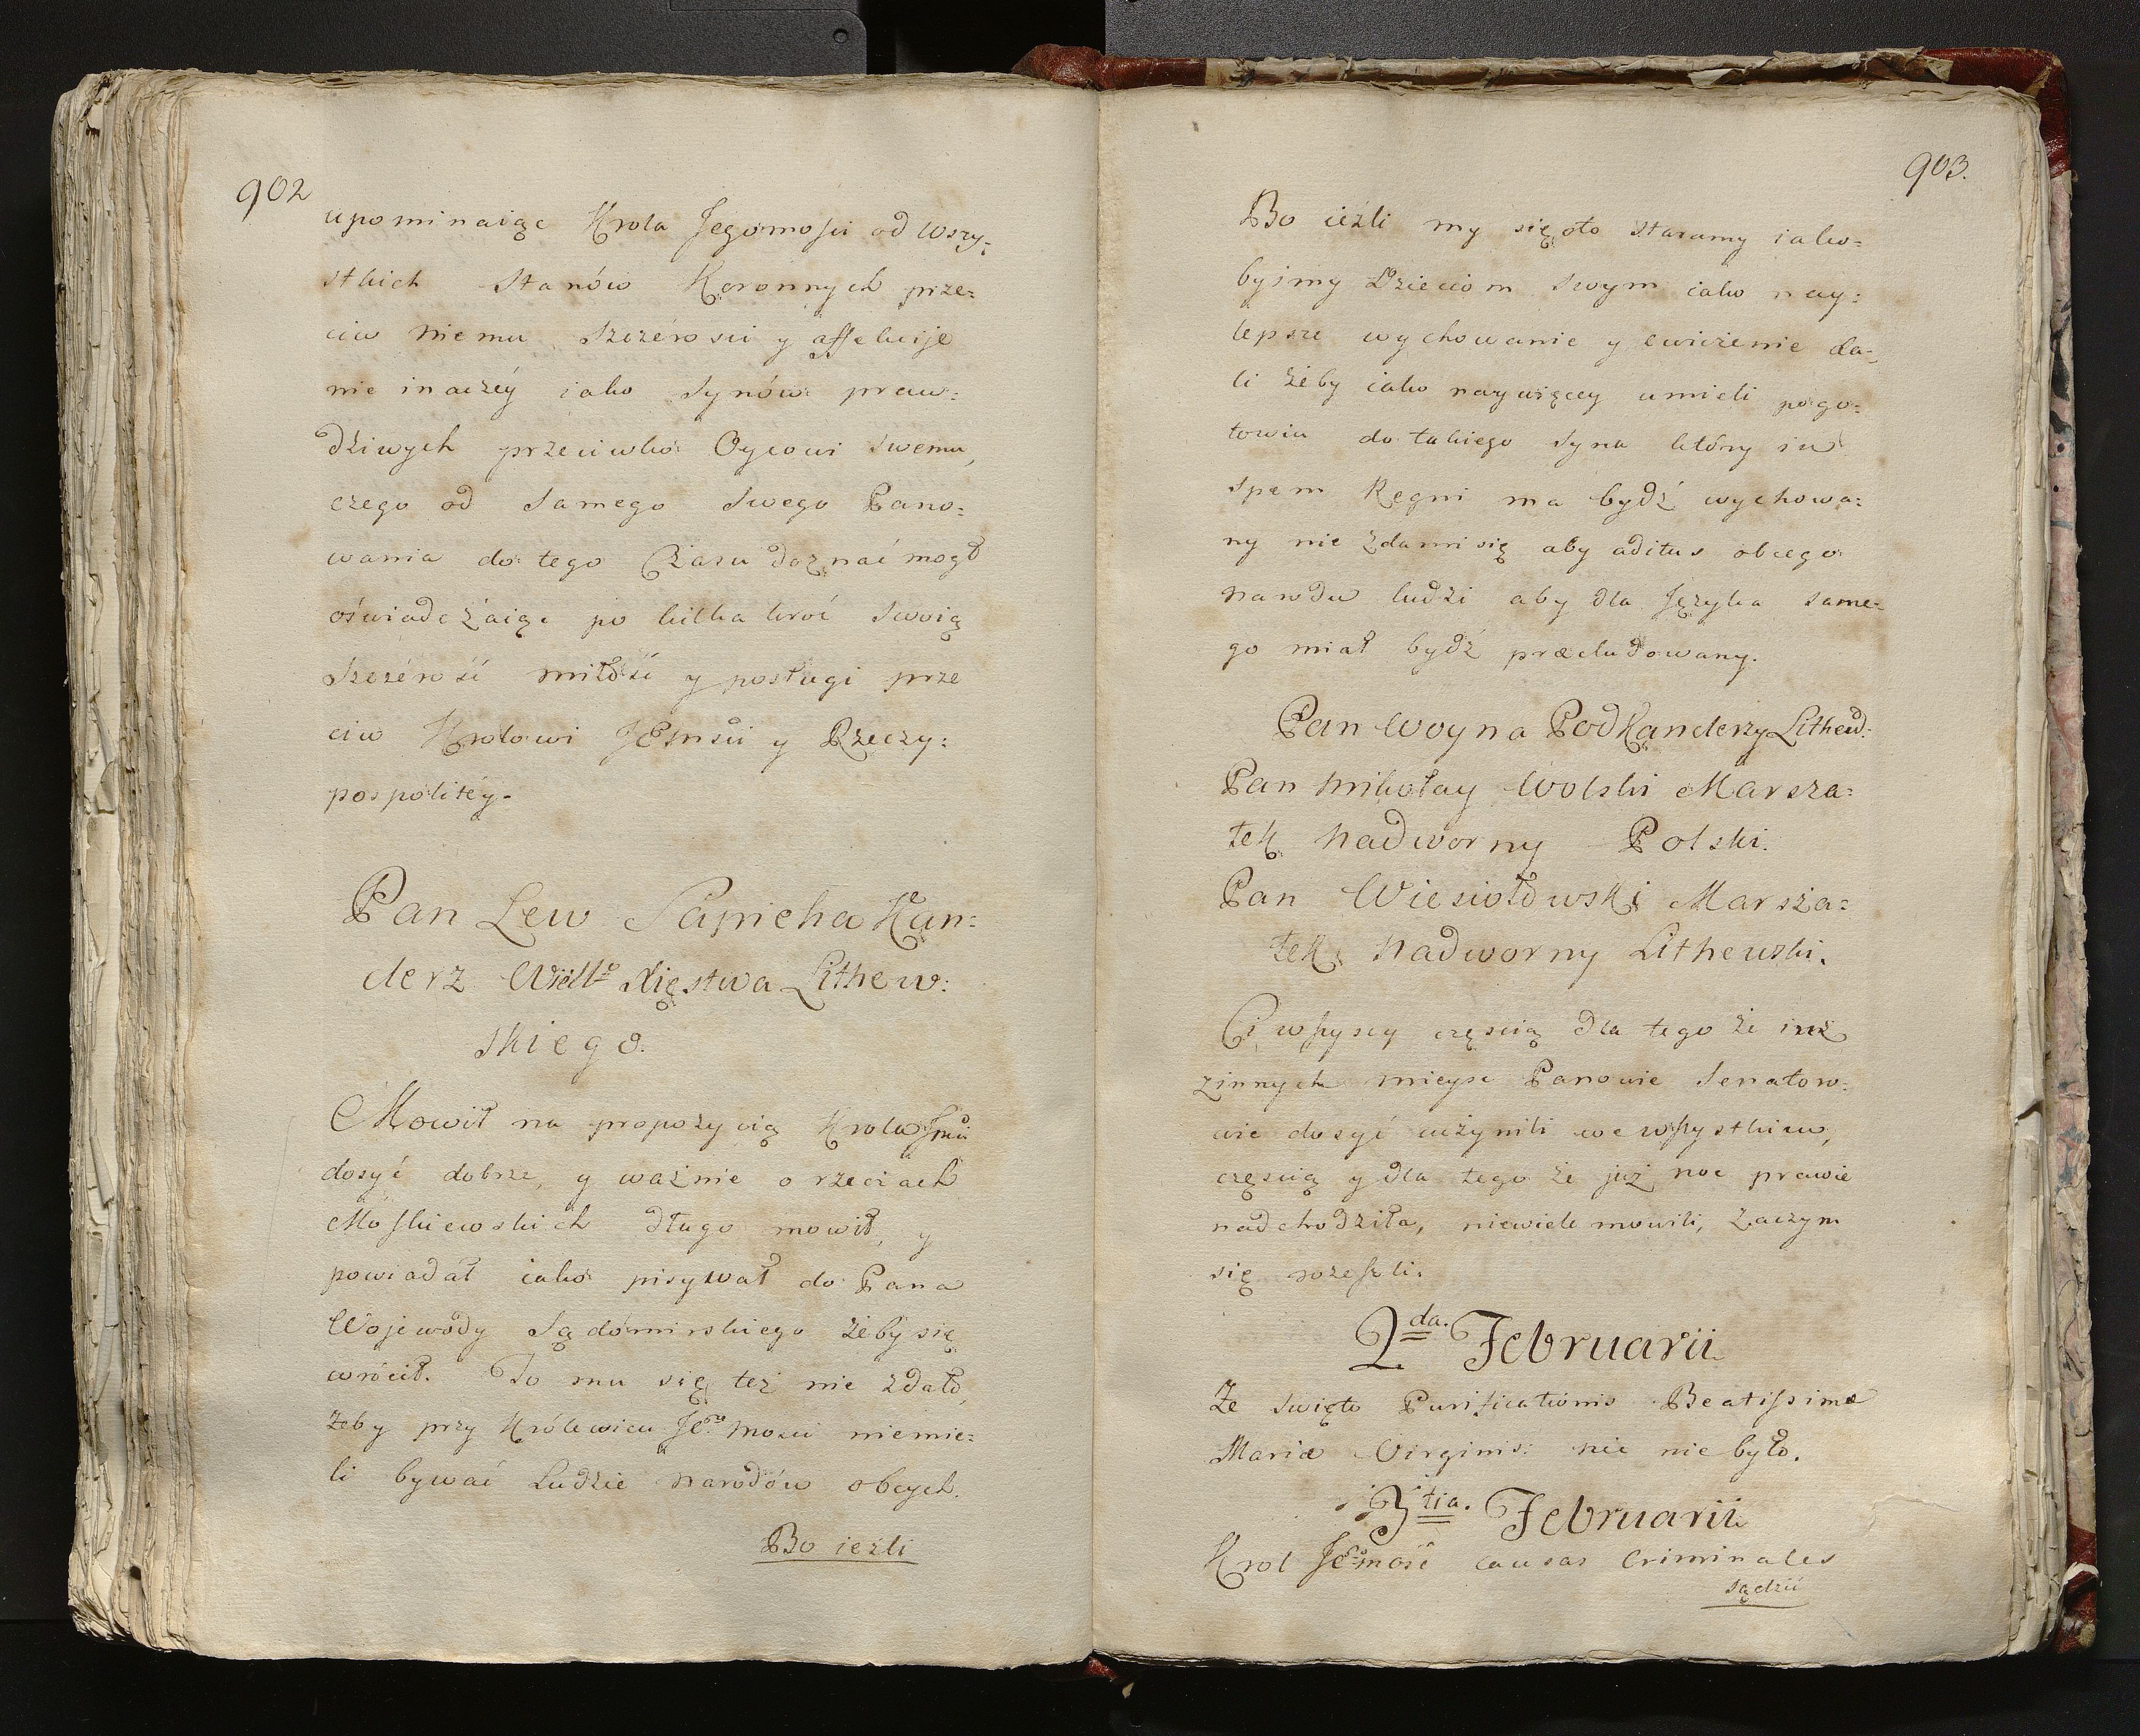 902
upominaiąc Krola Jegomości od Wszy:
stkich Stanów Koronnych prze:
ciw niemu Szczérosci y affekcije
nie inaczéy iako Synów praw:
dziwych przeciwko Oycowi Swemu,
czego od Samego Swego Pano:
wania do tego Czasu doznać mogł
oświadczáiąc po kilka kroć Swoią
Szczérość miłość y posługi prze
ciw Krolowi JEmści y Rzeczy:
pospolitéy.
Pan Lew Sapieha Kan:
clerz Wiellº Xięstwa Lithew:
skiego.
Mowił na propozycią Krola Jmci
dosyć dobrze, y ważnie o rzeciach
Moskiewskich długo mowił, y
powiadał iako pisywał do Pana
Wojewody Sądomirskiego żeby się
wrócił. To mu się też nie zdało,
żeby przy Królewicu JEº Mosci niemie:
li bywać Ludzie narodów obcych.
Bo ieżli
903.
Bo ieżli my się oto staramy iako=
byśmy Dzieciom swym iako nay:
lepsze wychowanie y cwiczenie da-
li żeby iako naywięcey umieli pogo:
towiu do takiego Syna który in
spem Regni ma bydź wychowa:
ny nie zdami się aby aditus obcego
narodu ludzi aby dla Języka same=
go miał bydź præcludowany.
Pan Woyna PodKanclerzy Lithew:
Pan Mikołay Wolski Marsza:
łek Nadworny Polski.
Pan Wiesiołowski Marsza:
łek Nadworny Lithewski.
Ci wszyscy częscią dla tego że iuż
zinnych mieysc Panowie Senatow:
wie dosyć uczynili we wszystkim,
częscią y dla tego że już noc prawie
nadchodziła, niewiele mowili, zaczym
się rozeszli.
2da. Februarii
Że swięto Purificationis Beatissimæ
Mariæ Virginis: nic nie było.
3tia. Februarii
Krol JEºmość causas Criminales
sądził